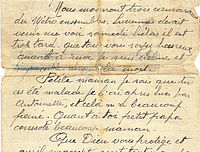 Nous mourrons trois camarades
du Métro ensembles. Lucienne devait
venir me voir samedi hélas il est
trop tard, que tout vous soyez heureux
quand à moi je suis calme et
la mort.
Petite maman je sais que tu
as été malade je l'ai appris par
Antoinette, et cela m'a beaucoup
peiné. Quant à toi petit papa
console beaucoup maman.
Que Dieu vous protège et